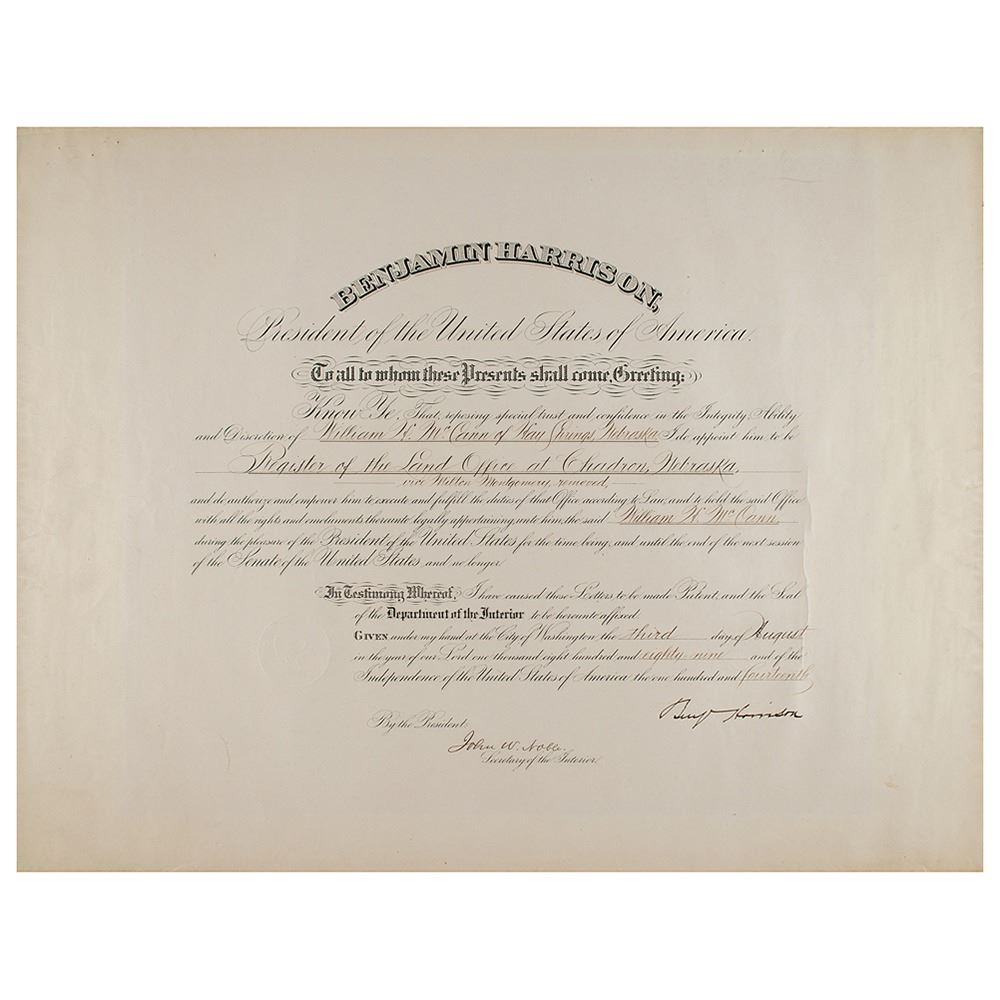 BENJAMIN HARRISON,
President of the United States of America.
To all to whom these Presents shall come, Greeting:
Know Ye, That, reposing special trust and confidence in the Integrity, Ability
and Discretion of William H. McCann of Hay Springs, Nebraska I do appoint him to be
Register of the Land Office at Chadron, Nebraska,
vice Milton Montgomery, removed,
and do authorize and empower him to execute and fulfill the duties of that Office according to Law, and to hold the said Office
with all the rights and emoluments thereunto legally appertaining, unto him, the said William H. McCann,
during the pleasure of the President of the United States for the time being, and until the end of the next session
of the Senate of the United States, and no longer.
In Testimony Whereof, I have caused these Letters to be made Patent, and the Seal
of the Department of the Interior to be hereunto affixed.
GIVEN under my hand at the City of Washington the third day of August
in the year of our Lord one thousand eight hundred and eighty nine and of the
Independence of the United States of America the one hundred and fourteenth,
Benj Harrison
By the President:
John W. Noble.
Secretary of the Interior.